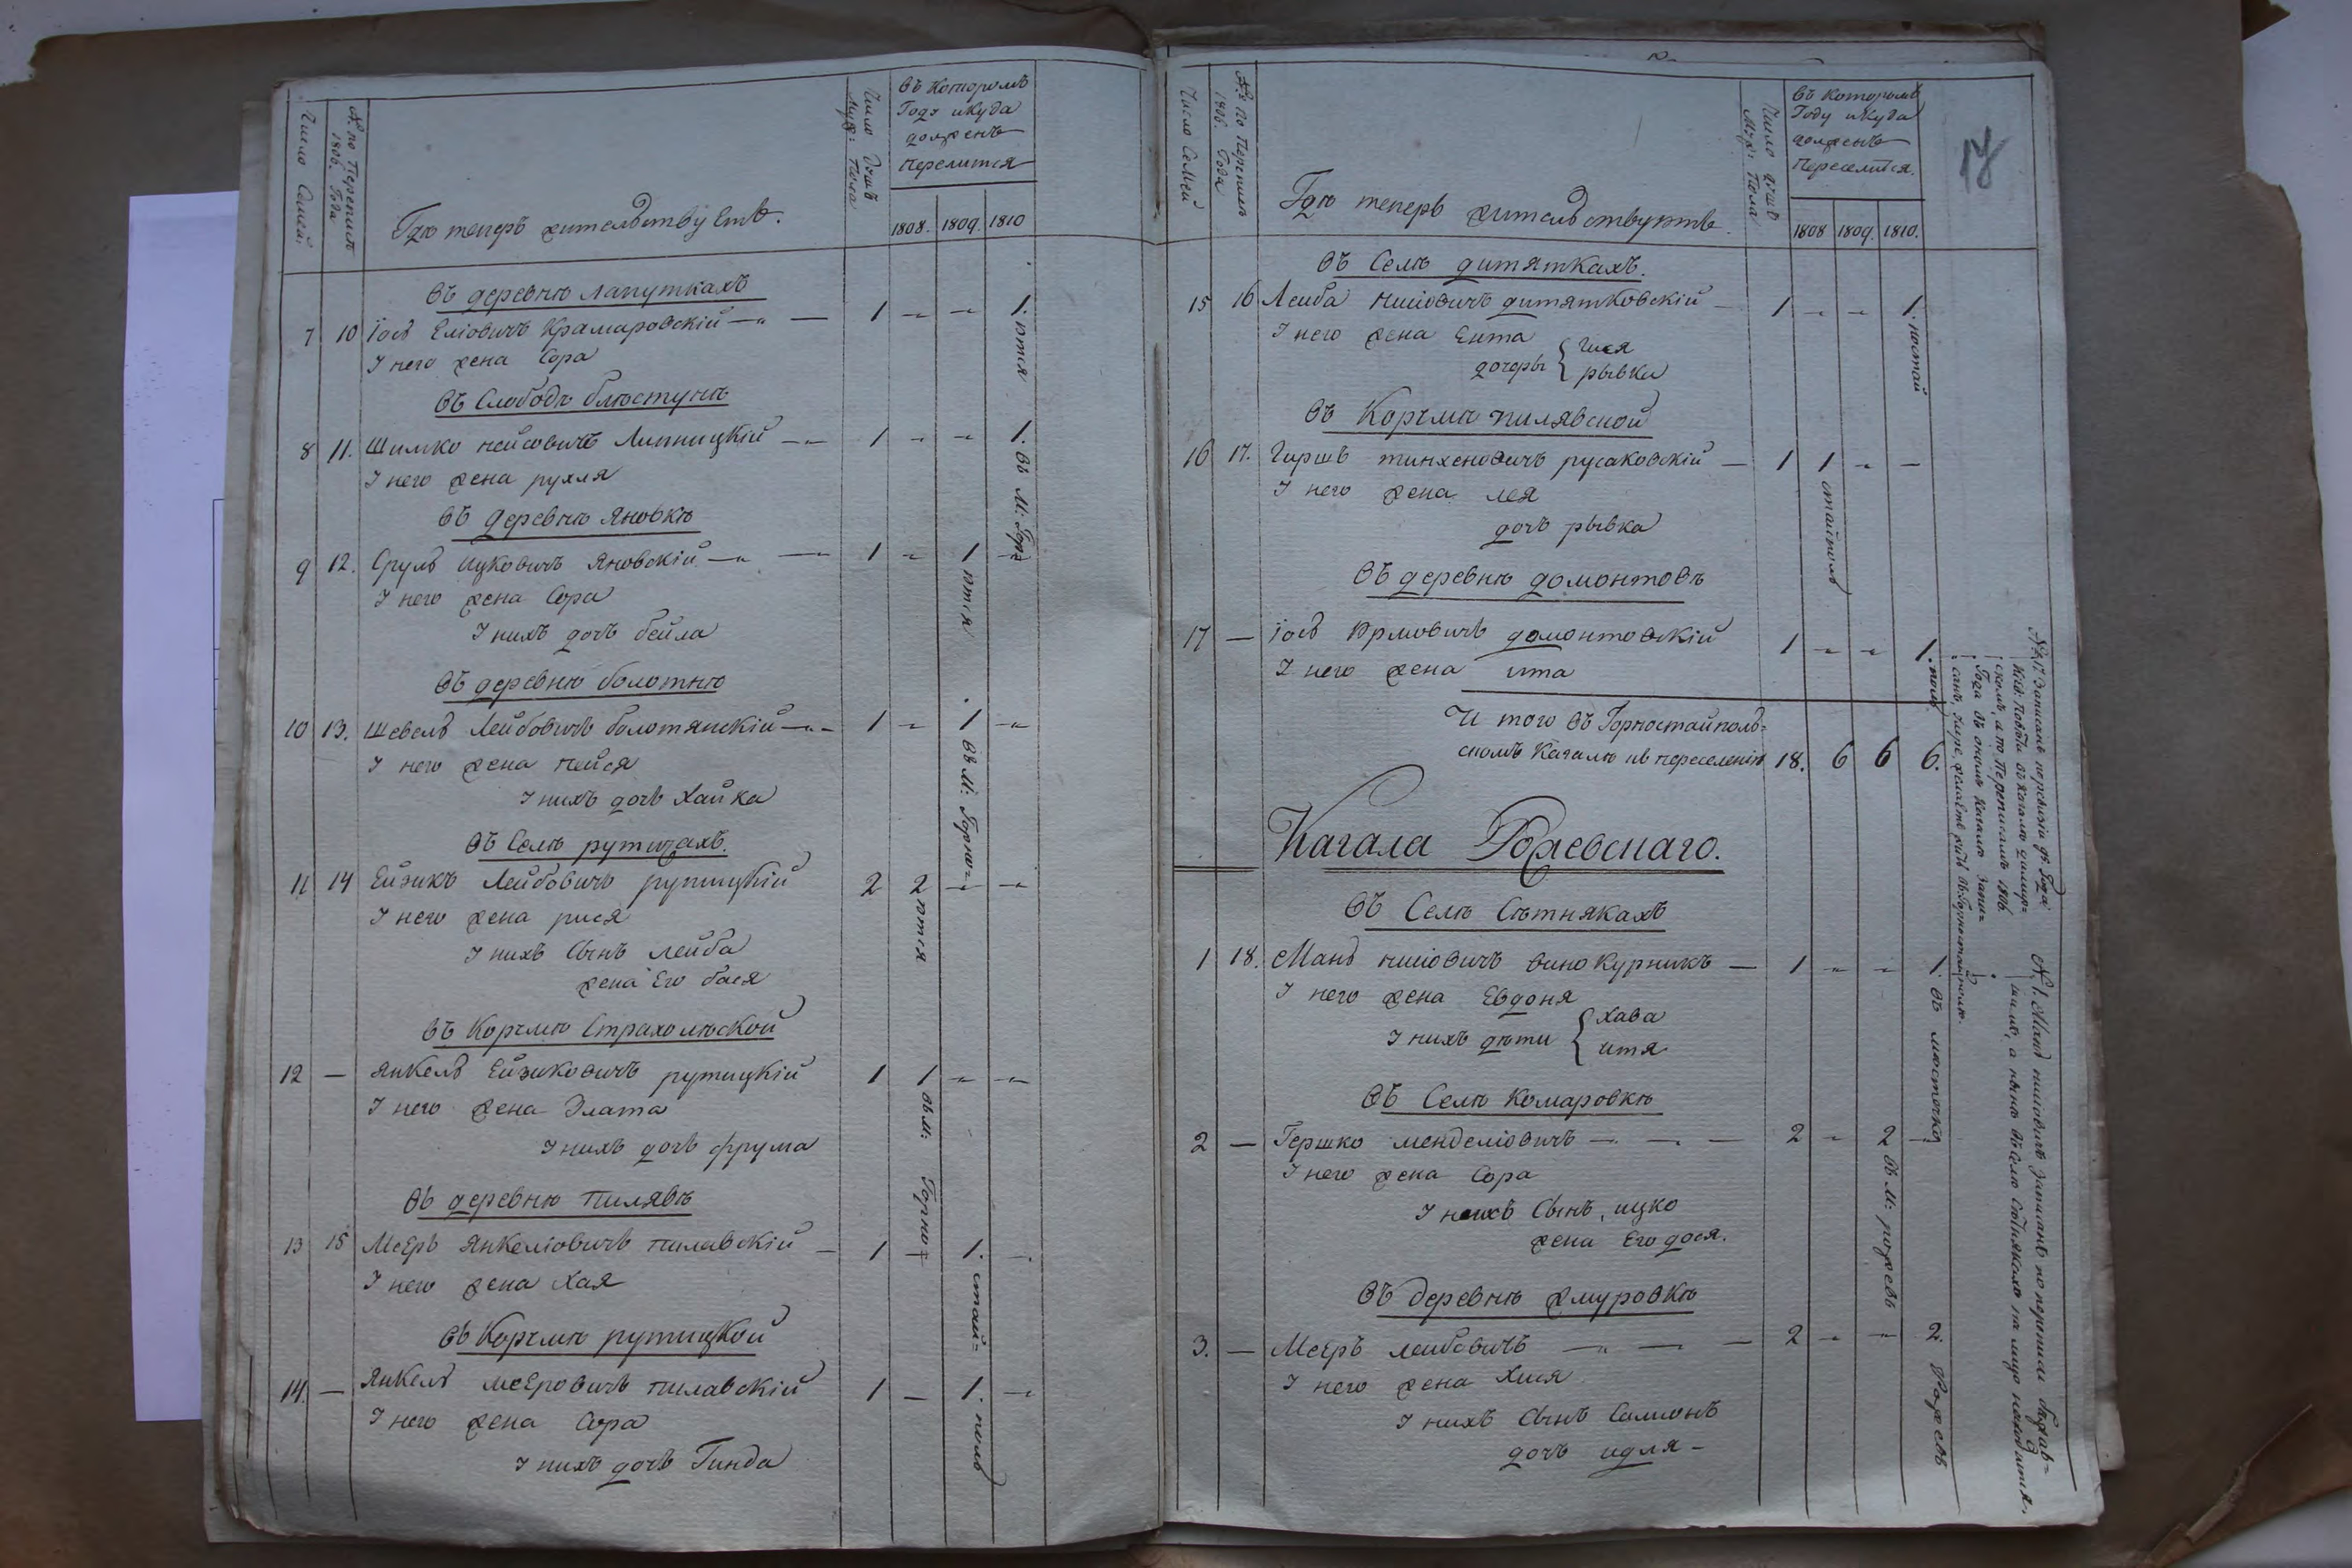 Число Семей.
№ по Переписи
1806. Года
Где теперъ жительствуетъ.
Число Душъ
Муж: пола
Въ Которомъ
Году и Куда
долженъ
переселится
1808. 1809. 1810
Въ деревне Лапуткахъ
7 10 Іосъ Еліовичъ Крамаровскій — 1 - - 1. ются
У него жена Сора
Въ Слободе блистуне
8 11. Шимко Нейсовичъ Липницкій — 1 - - 1. въ М: Гор=
У него жена рухля
Въ Деревне Яновке
9 12. Сруль Ицковичъ Яновскій — 1 - 1 - ются
У него жена Сора
У нихъ дочь бейла
Въ деревне болотне
10 13. Шевель Лейбовичъ болотянскій — 1 - 1 - въ М: Горно=
У него жена Нейся
У нихъ дочь Хайка
Въ Селе рутицахъ.
11 14 Ейзикъ Лейбовичъ рутицкій 2 2 - - ются
У него жена рися
У нихъ Сынъ Лейба
жена Его бася
Въ Корчме Страхолеской
12 — Янкель Ейзиковичъ рутицкій 1 1 - - въ М: Горно=
У него жена Злата
У нихъ дочь фрума
Въ деревне пиляве
13 15 Меерь Янкеліовичъ пилавскій — 1 - 1. - стай=
У него жена Хая
Въ Корчме рутицкой
14. — Янкель Мееровичъ пилавскій 1 — 1. - поль
У него жена Сора
У нихъ дочь Гинда
Число Семей
№ по Переписи
1806. Года
Где теперь жительствуетъ.
Число душъ
Муж: пола
Въ Которомъ
Году и Куда
долженъ
Переселится.
1808 1809. 1810.
Въ Селе дитяткахъ.
15 16 Леиба Нисіовичъ дитятковскій — 1 - - 1. ностай
У него жена Ента
дочеры { Гися
рывка
Въ Корчме пилявской
16 17. Гиршъ русаковскій — 1 1 - — стайполь
У него жена лея
дочь рывка
Въ деревне домонтове
17 — Іосъ домонтовскій 1 - - 1. поль
У него жена ита
И того въ Горностайполь=
скомъ Кагале къ переселенію 18. 6 6 6.
Кагала Рожевскаго.
Въ Селе Сетнякахъ
1 18. Мань Нисіовичъ винокурникъ — 1 - - 1. въ местечко
У него жена Евдоня
У нихъ дети { Хава
итя
Въ Селе Комаровке
2 — Гершко менделіовичъ — 2 - 2 - въ М: рожевъ
У него жена Сора
У нихъ Сынъ, ицко
жена Его дося.
Въ деревне жмуровке
3. — Меерь леибовичъ — 2 - - 2. Рожевъ
У него жена Хися
У нихъ Сынъ Саминъ
дочъ идля -
№ 17. Записанъ по ревизіи
а по Переписи 1806.
Года въ Кагале запи=
санъ
№ 1. Мань Нисіовичъ записанъ по переписи
а ныне въ Селе Сетнякахъ на лицо находится.